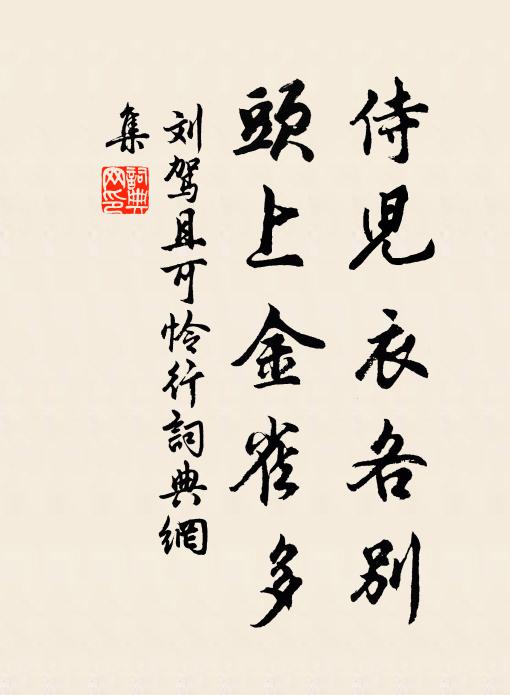 侍兒衣各別
頭上金雀多
刘驾且可怜行詞典網
集
詞典
网印